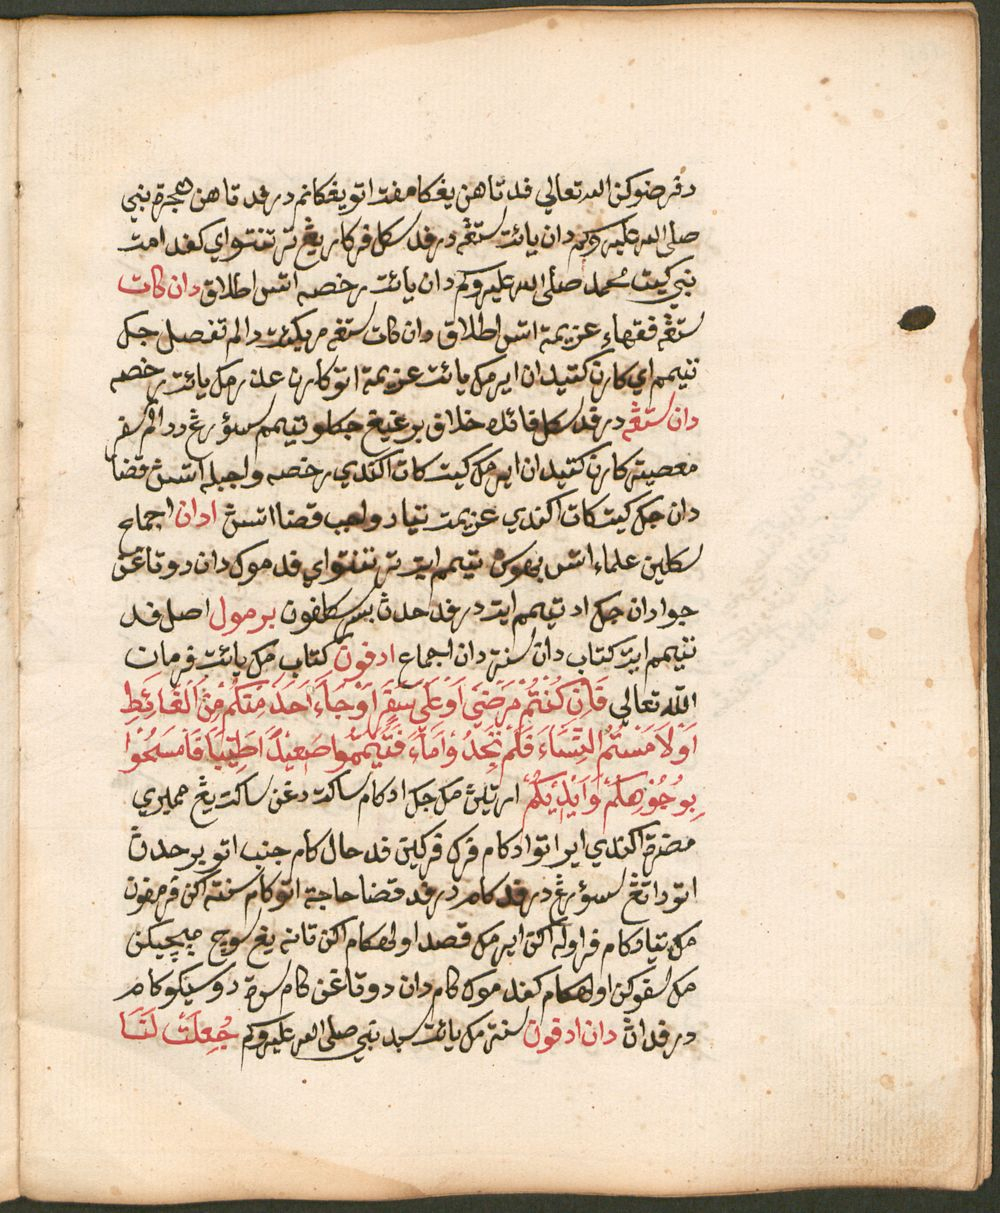 دفرضوكن الله تعالى فد تاهن يڠكامفت اتو يڠكانم درفد تاهن هجرة نبي
صلى الله عليه وسلم دان يائت ستڠه درفد سكل فركار يڠ ترتنتو اي كفد امت
نبي كيت محمد صلى الله عليه وسلم دان يائت رخصه اتس اطلاق دان كات
ستڠه فقهاء عزيمة اتس اطلاق دان كات ستڠه مريكئت دالم تفصل جك
تيمم اي كارن كتيدان اير مك يائت عزيمة اتو كارن عذر مك يائت رخصه
دان ستڠه درفد سكل فائده خلاق برڠيڠ جكلو تيمم سؤرڠ ددالم سفر
معصية كارن كتيدان اير مك كيت كات اكندي رخصه واجبله اتسڽ قضا
دان جك كيت كات اكندي عزيمت تياد واجب قضا اتسڽ ادان اجماع
سكلين علماء اتس بهوس تيمم ايت ترتنتو اي فد موك دان دوتاڠن
جوا دان جك اد تيمم ايت درفد حدث بسر سكلفون برمول اصل فد
تيمم ايت كتاب دان سنة دان اجماع ادفون كتاب مك يائت فرمان
الله تعالى فَاِنْ كُنْتُمْ مَرْضَى اَوْ عَلَى سَفَرٍ اَوْ جَاءَ اَحَدٌ مِنْكُمْ مِنَ الْغَائِطِ
اَوْ لَامَسْتُمُ النِّسَاءَ فَلَمْ تَجِدُوْا مَاءً فَتَيَمَّمُوا صَعِيْدًا طَيِّبًا فَامْسَحُوْا
بِوُجُوْهِكُمْ وَاَيْدِيْكُمْ ارتيڽ مك جك اد كام ساكت دڠن ساكت يڠ ممبري
مضرة اكندي اير اتو اد كام فرك فركين فد حال كام جنب اتو برحدث
اتو داتڠ سؤرڠ درفد كام درفد قضا حاجة اتو كام سنته كن فرمفون
مك تياد كام فراوله اكن اير مك قصد اولهكام اكن تانه يڠ سوچ
مك سفوكن اولهكام كفد موك كام دان دوتاڠن كام سرة دو سيكو كام
درفداڽ دان ادفون سنة مك يائت سبد نبي صلى الله عليه وسلم جُعِلَتْ لَنَا